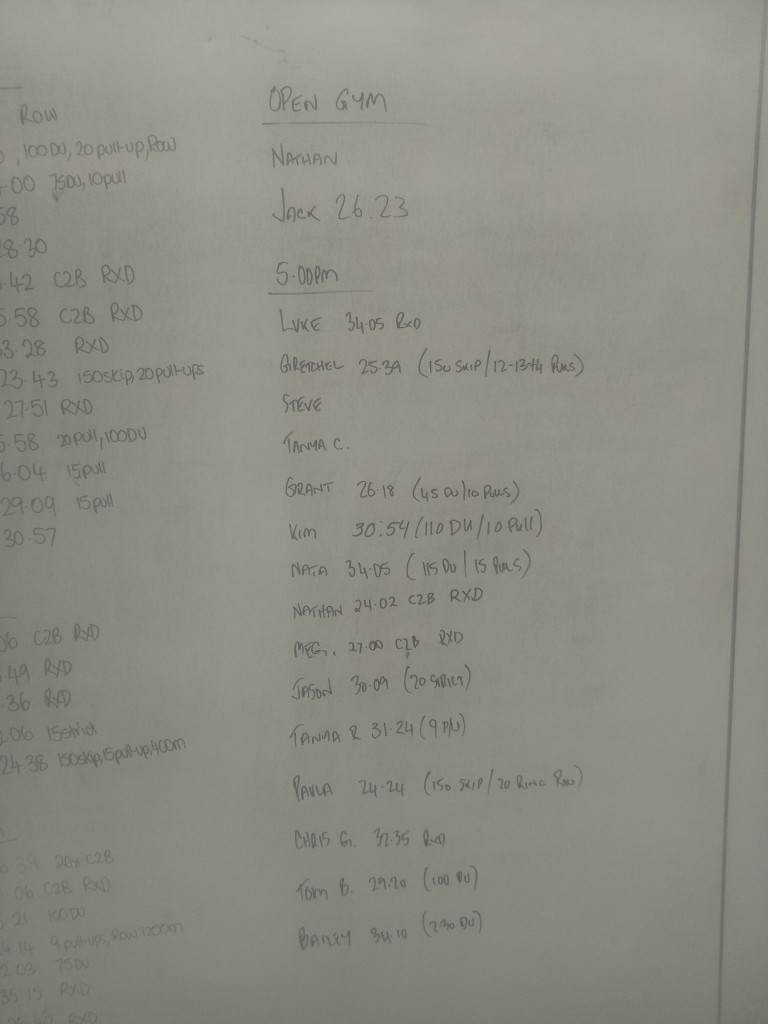 ROW
, 100DU, 20 pull-up, Row
-00 75DU, 10pull
58
28 30
.42 C2B RXD
5.58 C2B RXD
3.28 RXD
23.43 150skip, 20pull-ups
27.51 RXD
5.58 20pull, 100DU
6.04 15pull
29.09 15pull
30.57
06 C2B RXD
.49 RXD
.36 RXD
2.06 15strict
24.38 150skip, 15pull-up, 400m
39 20x C2B
.06 C2B RXD
.21 100DU
4.14 9 pull-ups, Row 1200m
2 03 75DU
35 15 RXD
RXD
OPEN GYM
NATHAN
JACK 26.23
5.00pm
LUKE 34.05 RxD
GRETCHEL 25.39 (150 SKIP/12-13+4 PULLS)
STEVE
TANYA C.
GRANT 26.18 (45 DU/10 PULLS)
Kim 30:54 (110 DU/10 Pull)
NATA 34.05 (115 DU/15 PULLS)
NATHAN 24.02 C2B RXD
MEG. 27.00 C2B RXD
JASON 30.09 (20 STRICT)
TANYA R 31.24 (9 P/U)
PAULA 24.24 (150 SKIP/20 RING ROW)
CHRIS G. 32.35 RxD
TOM B. 29.20 (100 DU)
BAILEY 34.10 (230 DU)